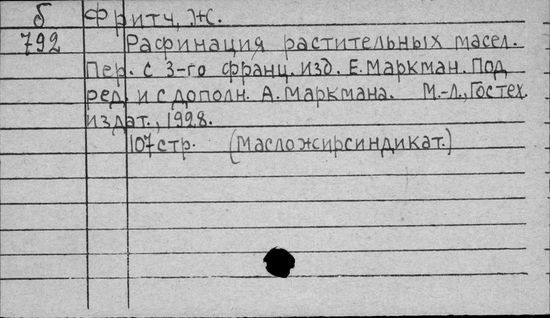 б Фритч, Ж.
792 Рафинация растительных масел.
Пер. с 3-го франц. изд. Е. Маркман. Под
ред. и с дополн. А. Маркмана. М.-Л., Гостех.
издат., 1928.
107 стр. (Масложирсиндикат.)